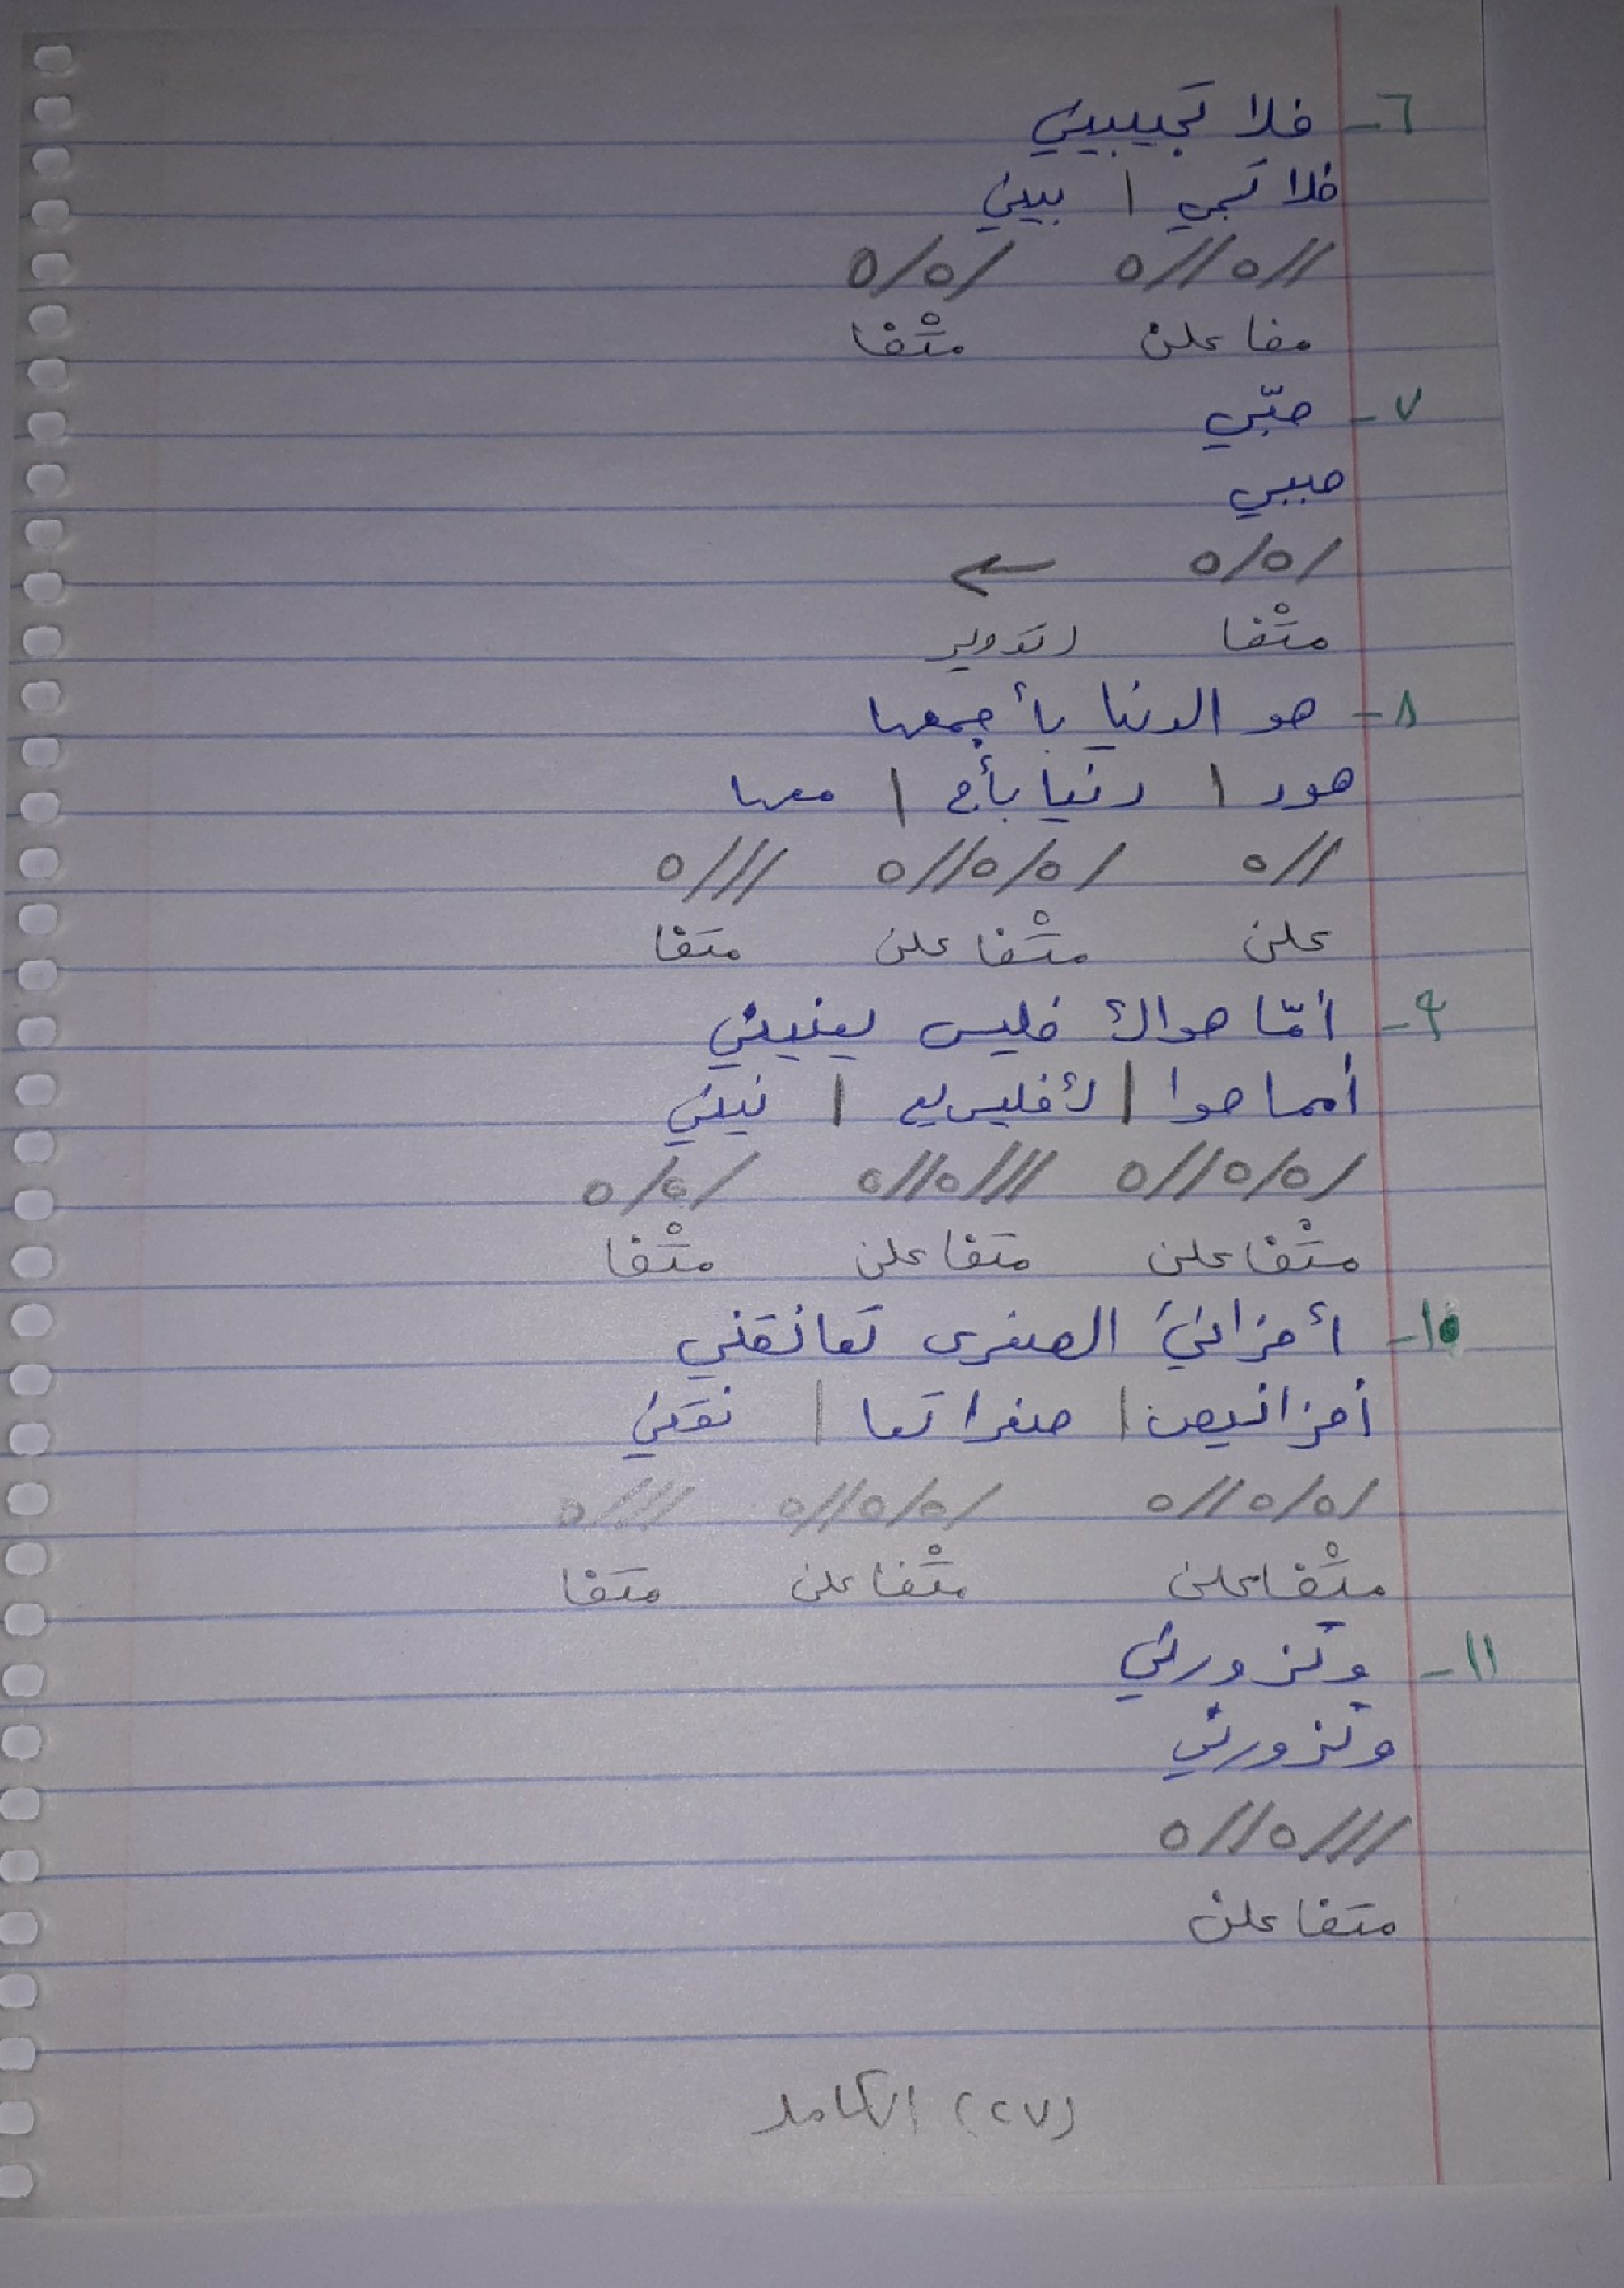 ٦- فلا تجيبيني
فلا تجي | بيني
//ه//ه /ه/ه
مفاعلن متْفا
٧- حبّي
حببي
/ه/ه ←
متْفا (تدوير
٨- هو الدنيا بأجمعها
هود | دنيا بأج | معها
//ه /ه/ه//ه ///ه
علن متْفاعلن متفا
٩- أمّا هواكِ فليس يعنيني
أمما هوا | كِ فليس يع | نيني
/ه/ه//ه ///ه//ه /ه/ه
متْفاعلن متفاعلن متْفا
١٠- أحزانيَ الصغرى تعانقني
أحزانيص | صغرا تعا | نقني
/ه/ه//ه /ه/ه//ه ///ه
متْفاعلن متْفاعلن متفا
١١- وتزورني
وتزورني
///ه//ه
متفاعلن
(٢٧) الكامل